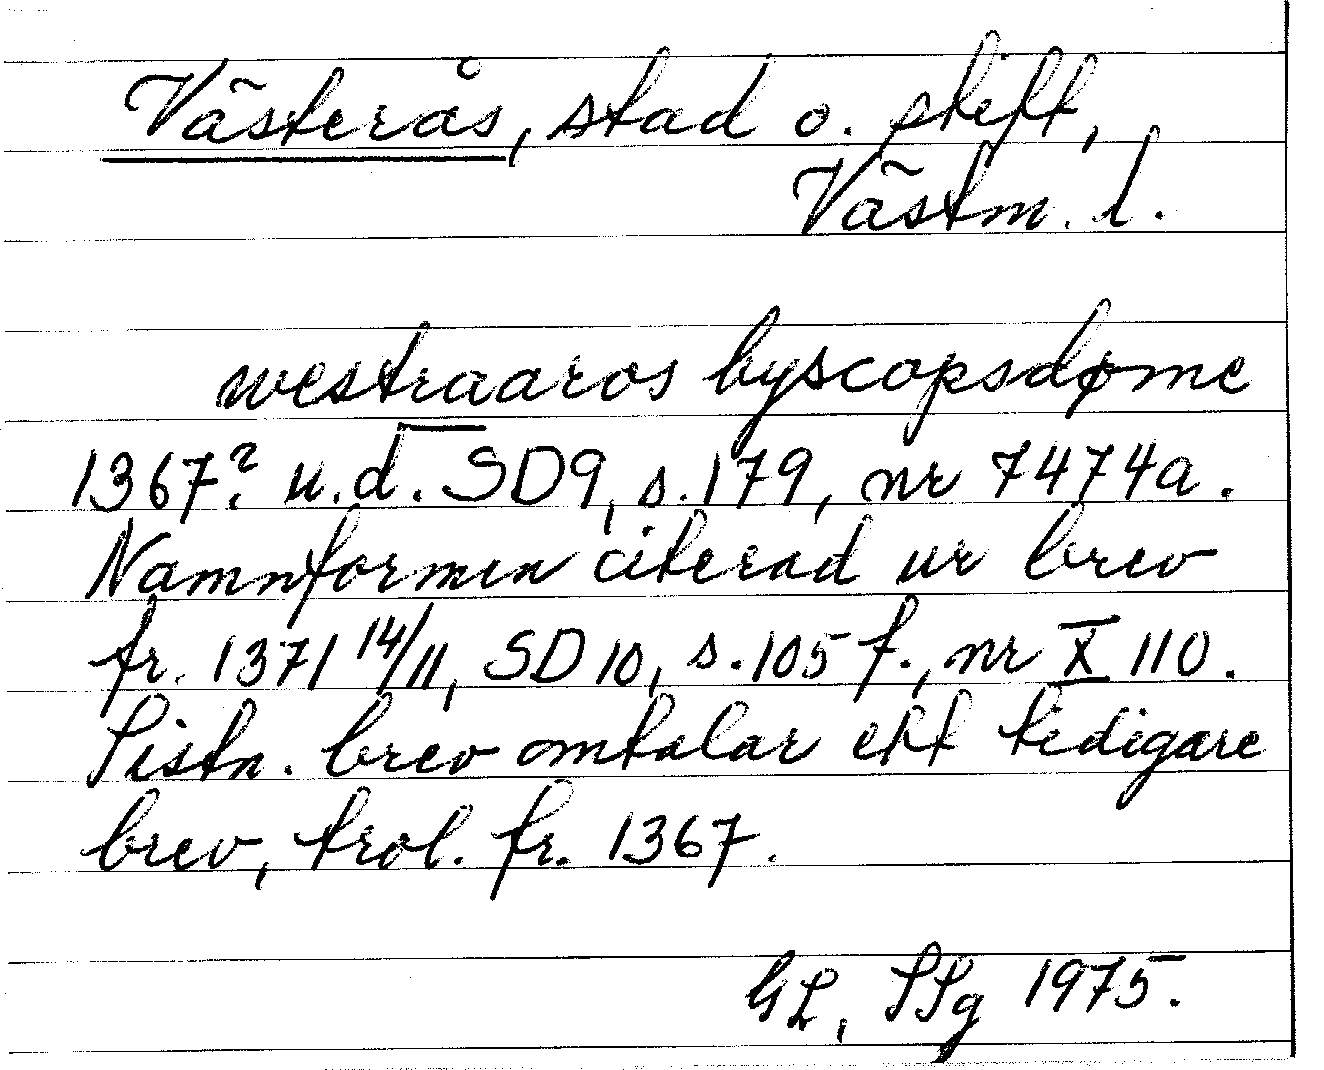 Västerås, stad o. stift,
Västm. l.
westraaros byscopsdøme
1367? u.d. SD9, s.179, nr 7474a.
Namnformen citerad ur brev
fr. 1371 14/11, SD 10, s.105 f., nr X 110.
Sistn. brev omtalar ett tidigare
brev, trol. fr. 1367.
GL, SSg 1975.